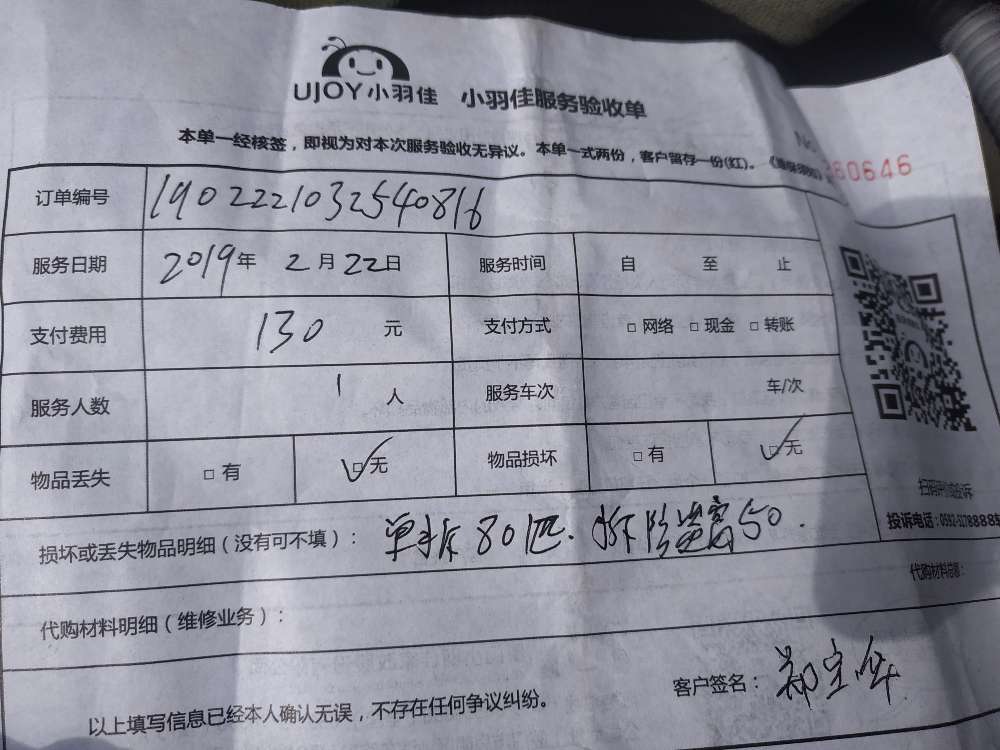 UJOY小羽佳 小羽佳服务验收单
本单一经核签，即视为对本次服务验收无异议。本单一式两份，客户留存一份(红)。
No 60646
订单编号 1902221032540816
服务日期 2019年 2月22日 服务时间 自 至 止
支付费用 130 元 支付方式 □网络 □现金 □转账
服务人数 1 人 服务车次 车/次
物品丢失 □有 □无 物品损坏 □有 □无
扫码评价或投诉
投诉电话：
损坏或丢失物品明细（没有可不填）： 单拆801匹.拆防盗窗50.
代购材料明细（维修业务）： 代购材料总额：
客户签名：
以上填写信息已经本人确认无误，不存在任何争议纠纷。